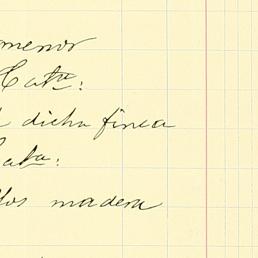 menor
Cata:
dicha finca
ata:
los madera